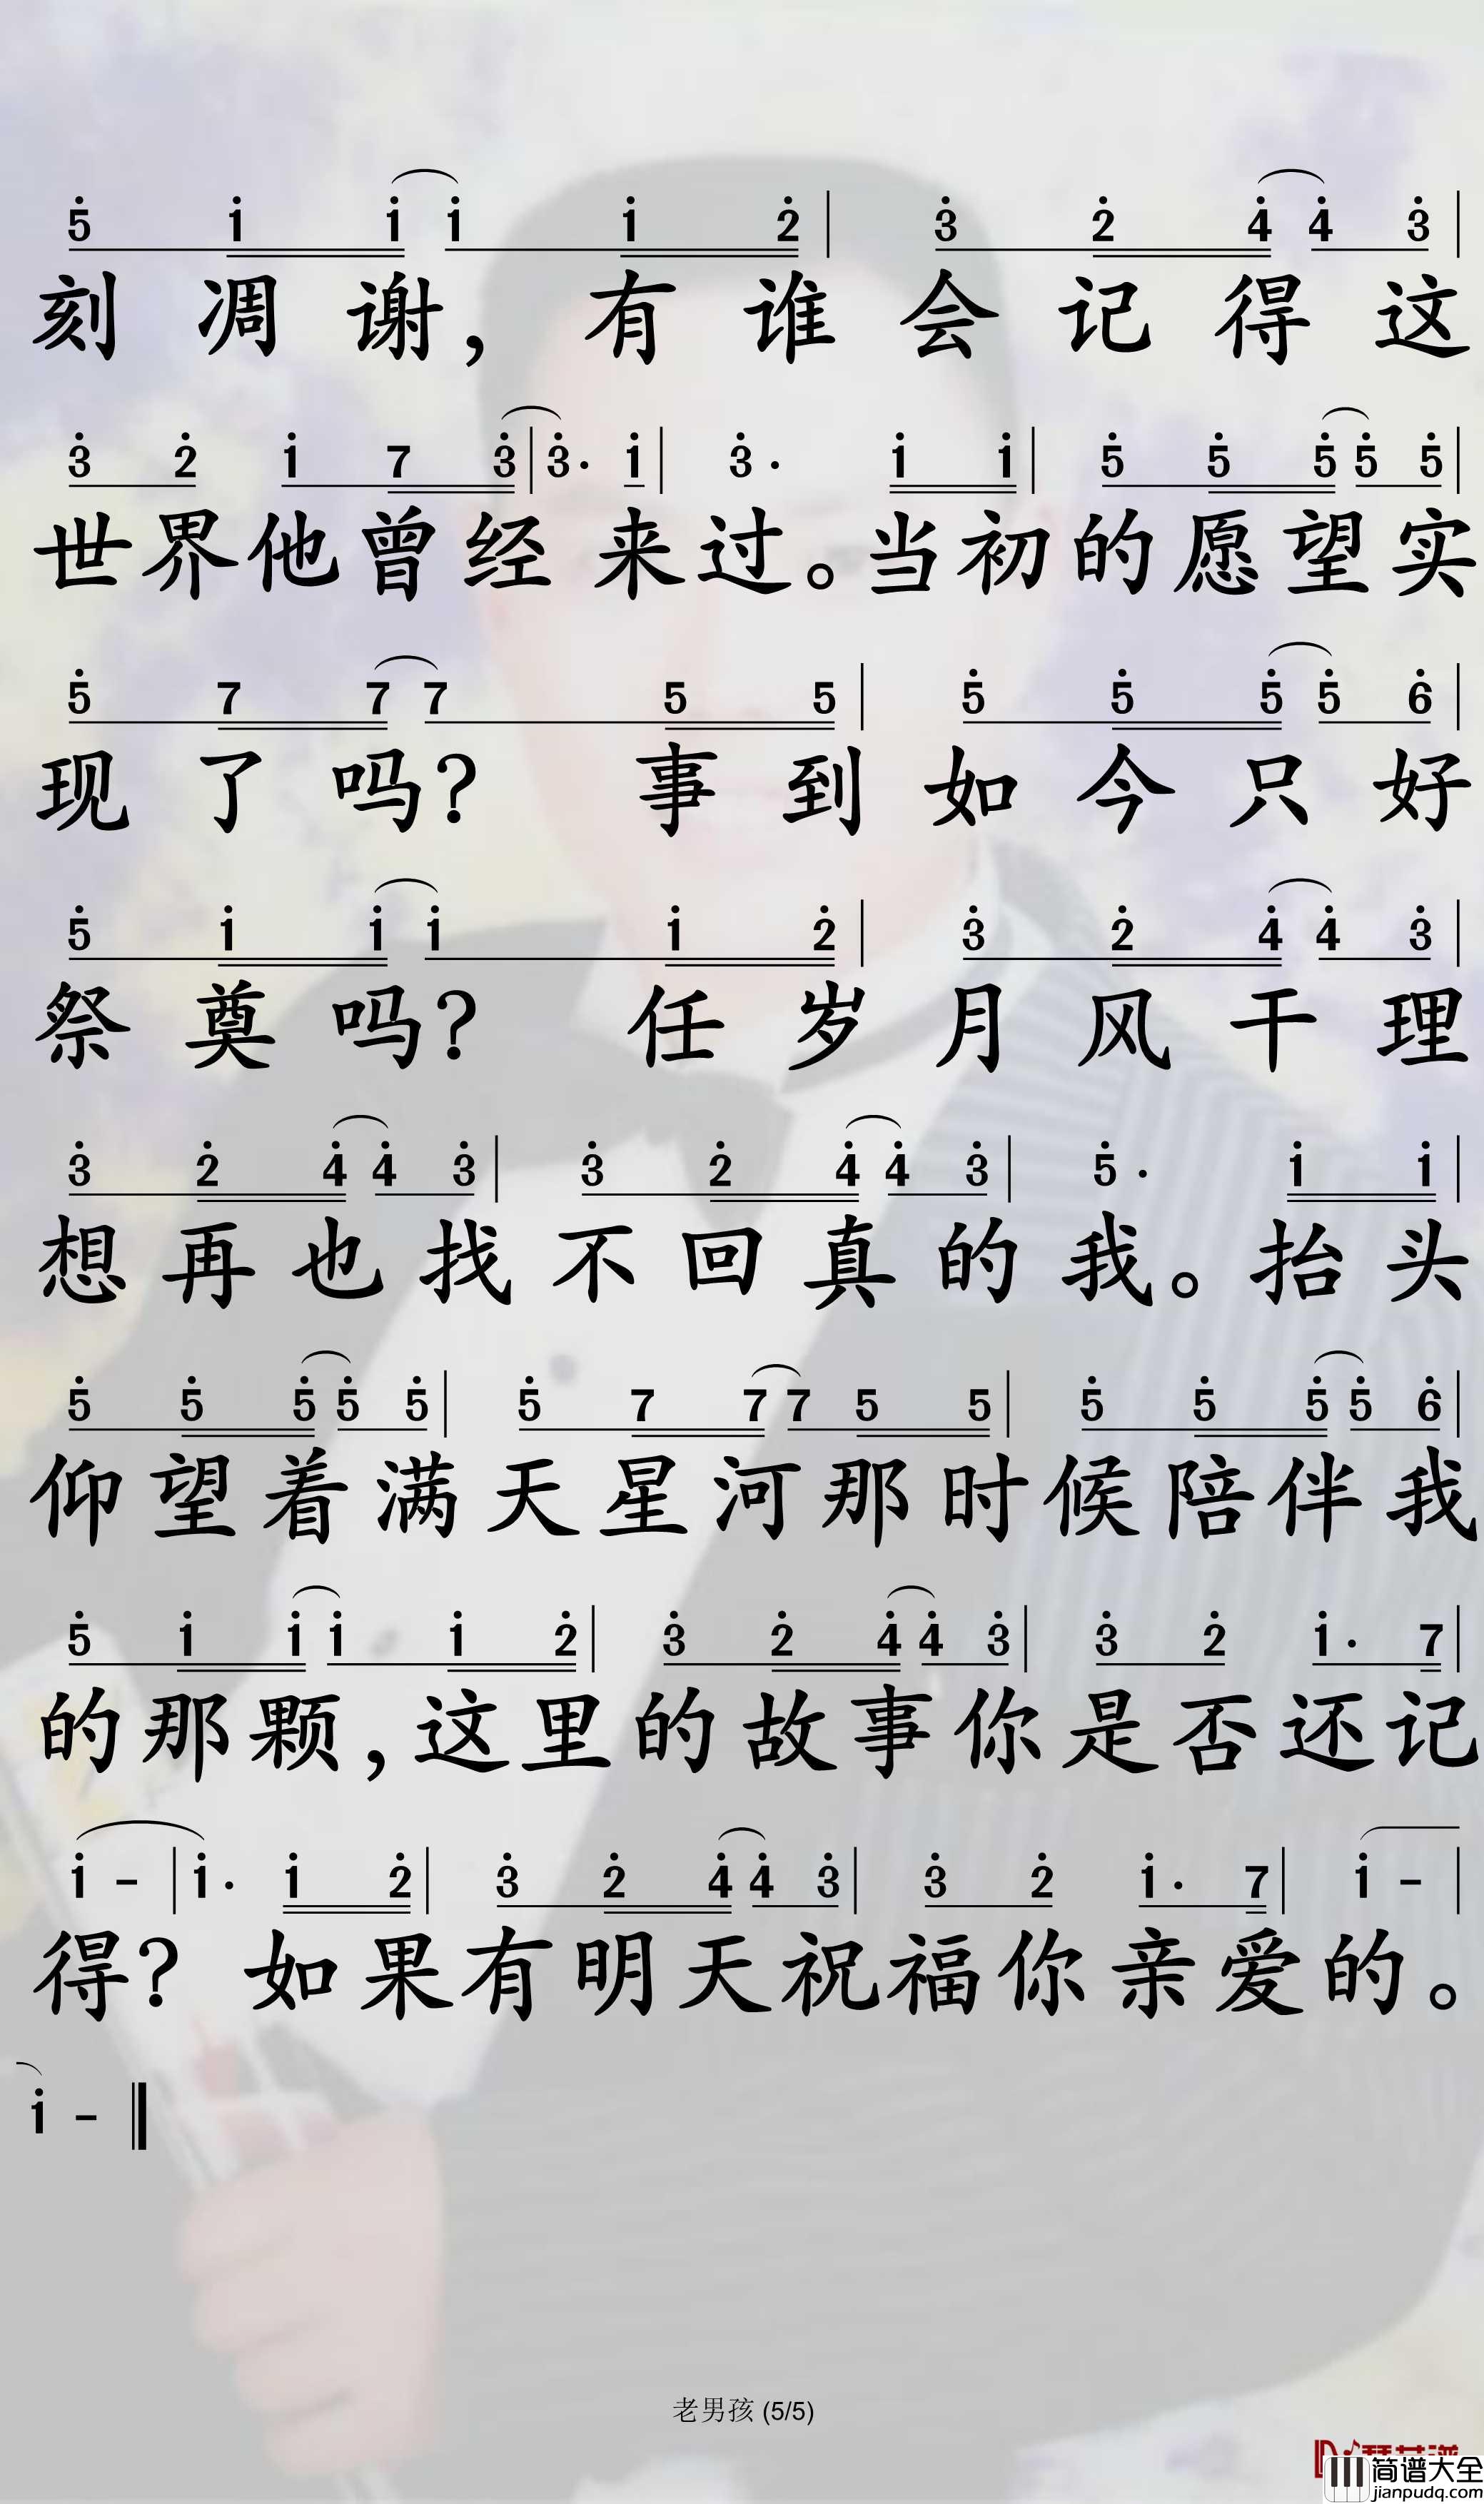 5 1 1 1 1 2 | 3 2 4 4 3 |
刻 凋 谢, 有 谁 会 记 得 这
3 2 1 7 3 | 3· 1 | 3· 1 1 | 5 5 5 5 5 |
世界他曾经来过。当初的愿望实
5 7 7 7 5 5 | 5 5 5 5 6 |
现 了 吗? 事 到 如 今 只 好
5 1 1 1 1 2 | 3 2 4 4 3 |
祭 奠 吗? 任 岁 月 风 干 理
3 2 4 4 3 | 3 2 4 4 3 | 5· 1 1 |
想再也找不回真的我。抬头
5 5 5 5 5 | 5 7 7 7 5 5 | 5 5 5 5 6 |
仰望着满天星河那时候陪伴我
5 1 1 1 1 2 | 3 2 4 4 3 | 3 2 1· 7 |
的那颗,这里的故事你是否还记
1 - | 1· 1 2 | 3 2 4 4 3 | 3 2 1· 7 | 1 - |
得? 如果有明天祝福你亲爱的。
1 -
老男孩 (5/5)
简谱大全
jianpudq.com